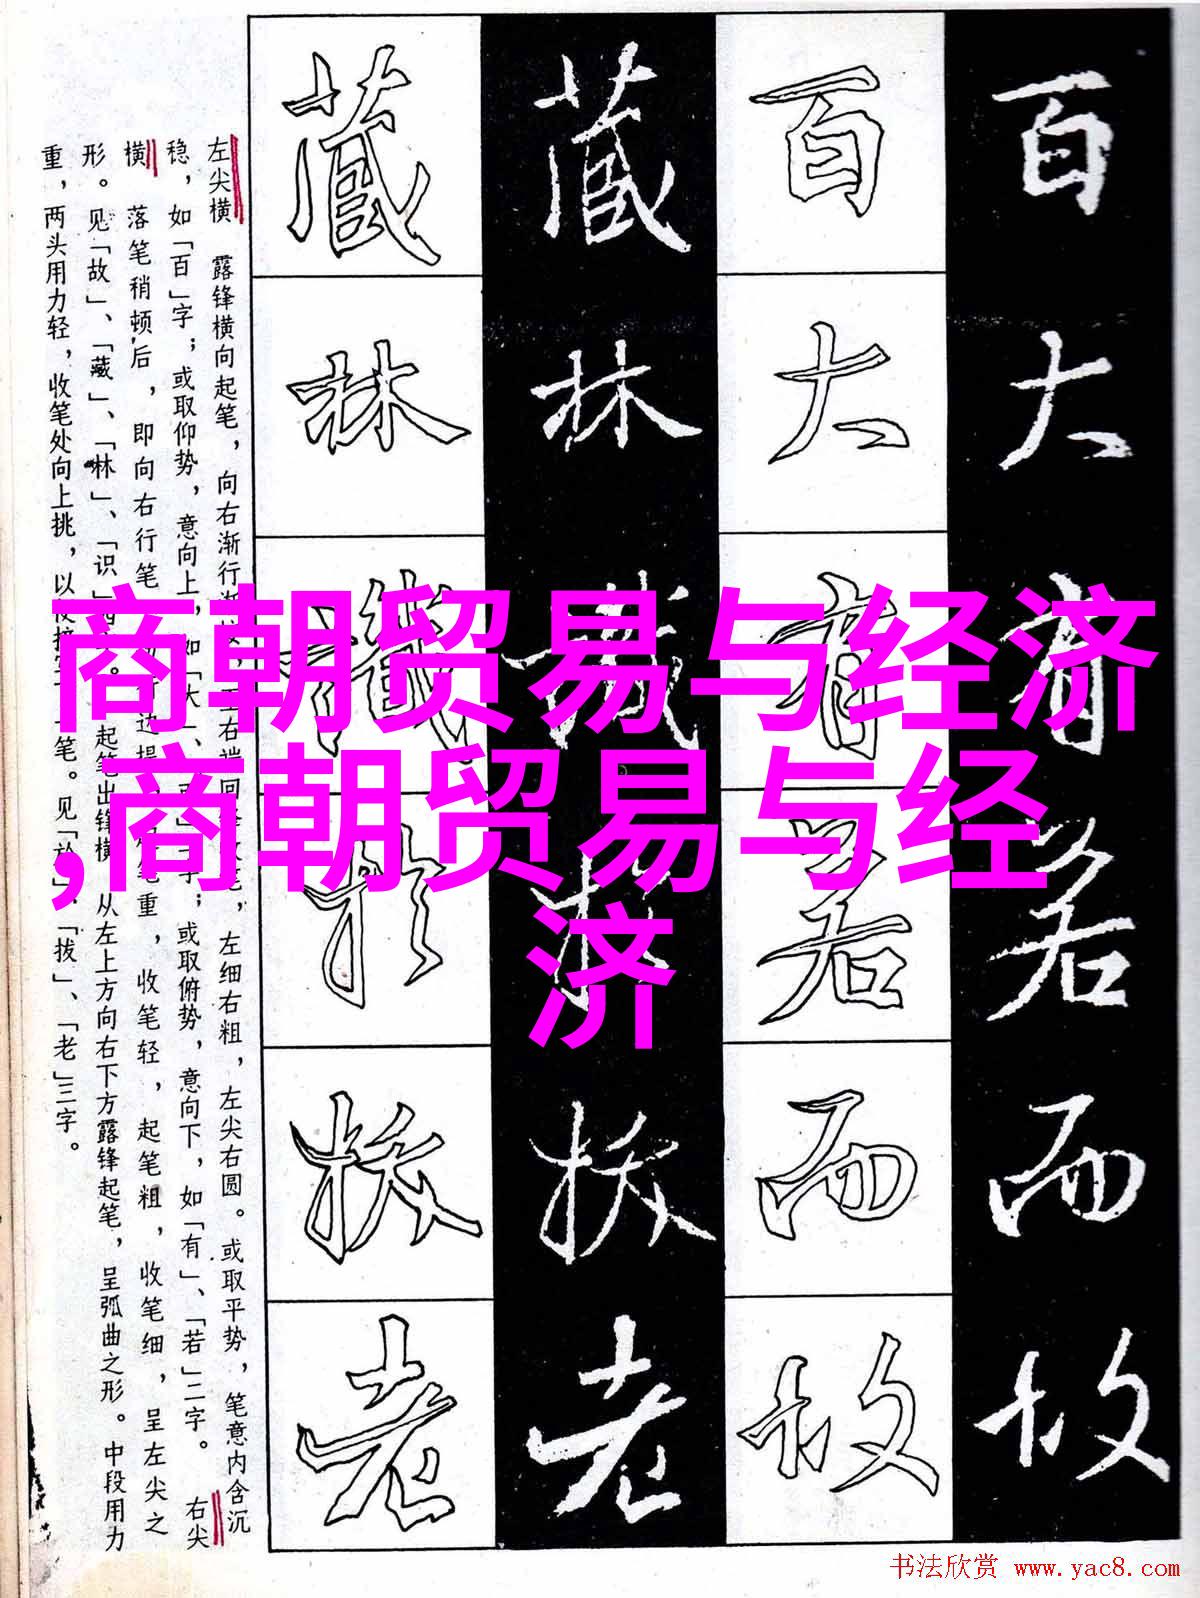 百大有若而故
百大有若而故
藏林识於拔老
藏林识於拔老
左尖横 露锋横向起笔，向右渐行 右端回 笔，左细右粗，左尖右圆。或取平势，笔意内含沉
稳，如「百」字；或取仰势，意向上，如「大 、 字；或取俯势，意向下，如「有」、「若」二字。 右尖
横 落笔稍顿后，即向右行笔 边提 笔重，收笔轻，起笔粗，收笔细，呈左尖之
形。见「故」、「藏」、「林」、「识」 。 起笔出锋横 从左上方向右下方露锋起笔，呈弧曲之形。中段用力
重，两头用力轻，收笔处向上挑，以 笔。见「於」、「拔」、「老」三字。
商朝贸易与经济
,商朝贸易与经
济
书法欣赏 www.yac8.com